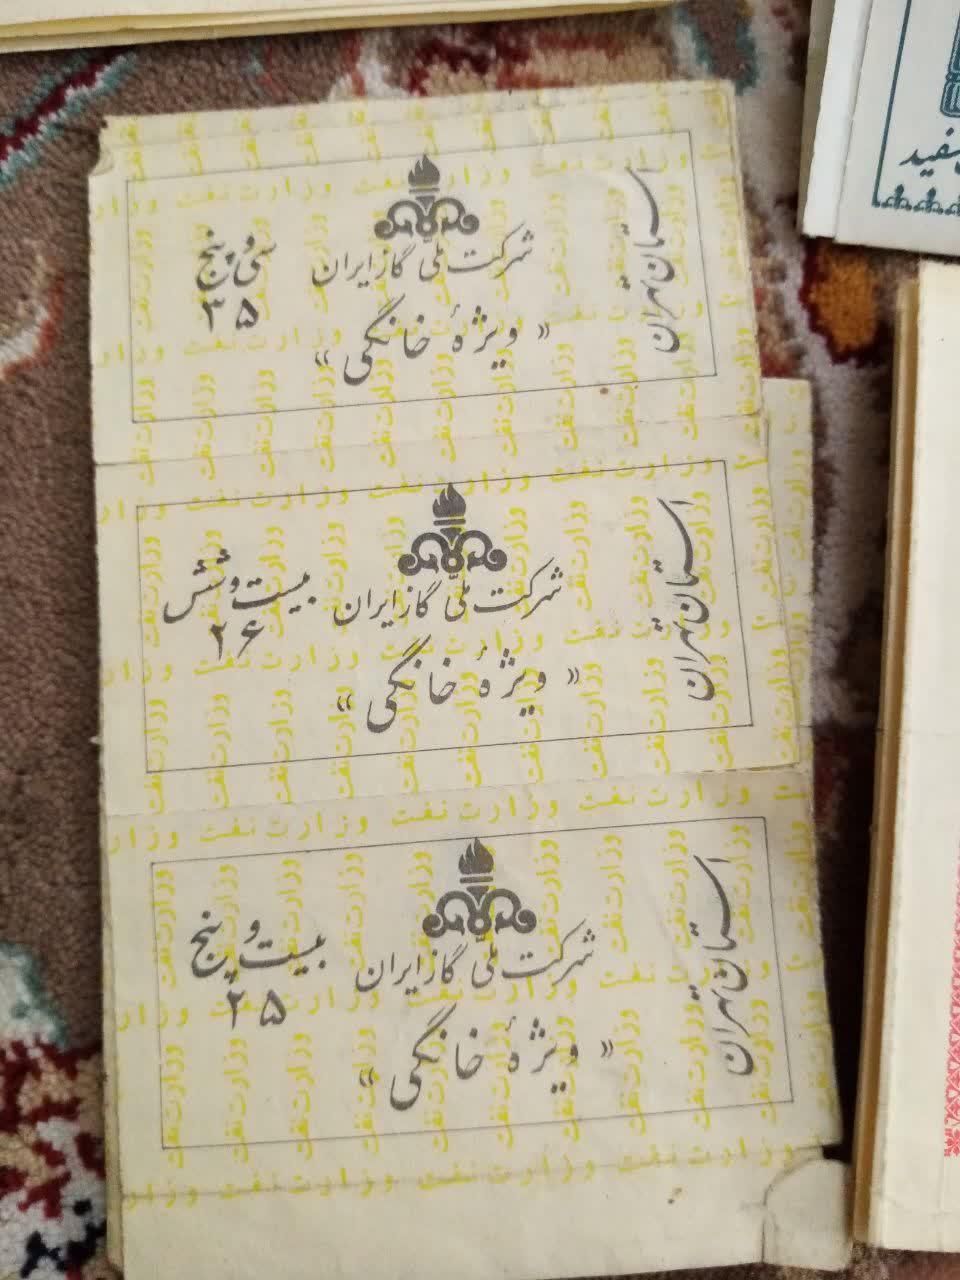 استان تهران
شرکت ملّی گاز ایران
سی و پنج
۳۵
«ویژهٔ خانگی»
استان تهران
شرکت ملّی گاز ایران
بیست و شش
۲۶
«ویژهٔ خانگی»
استان تهران
شرکت ملّی گاز ایران
بیست و پنج
۲۵
«ویژهٔ خانگی»
وزارت نفت وزارت نفت وزارت نفت
سفید